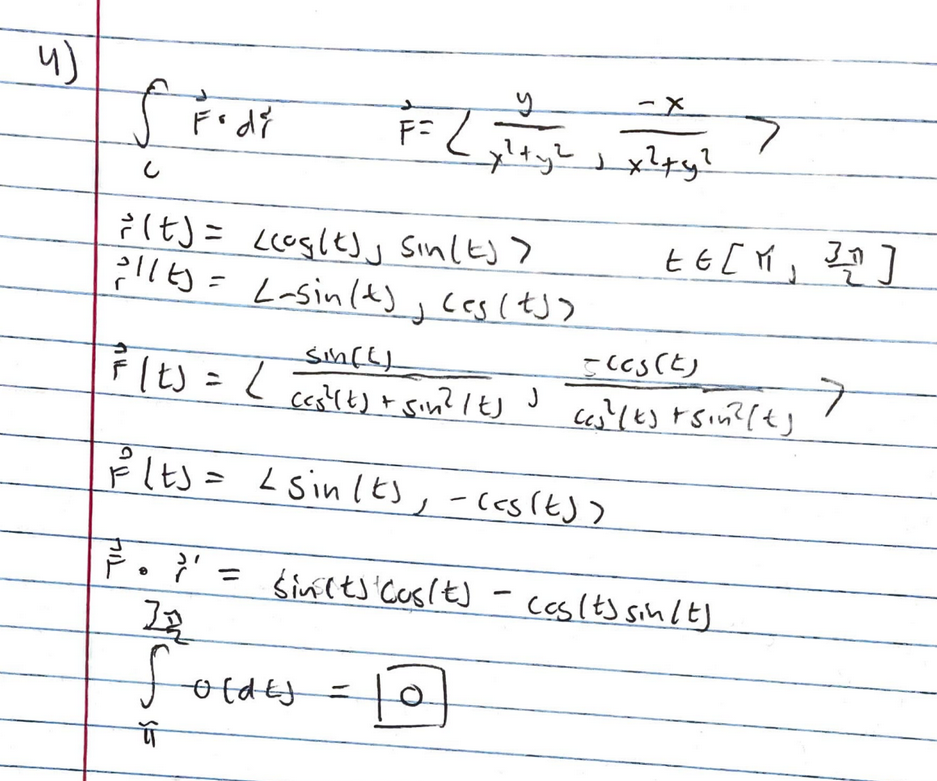 4)
∫_C F⃗ · dr⃗    F⃗ = < y/(x²+y²) , -x/(x²+y²) >
r⃗(t) = <cos(t), sin(t)>    t ∈ [π, 3π/2]
r⃗'(t) = <-sin(t), cos(t)>
F⃗(t) = < sin(t)/(cos²(t) + sin²(t)) , -cos(t)/(cos²(t) + sin²(t)) >
F⃗(t) = <sin(t), -cos(t)>
F⃗ · r⃗' = sin(t) cos(t) - cos(t) sin(t)
∫_π^{3π/2} 0(dt) = 0